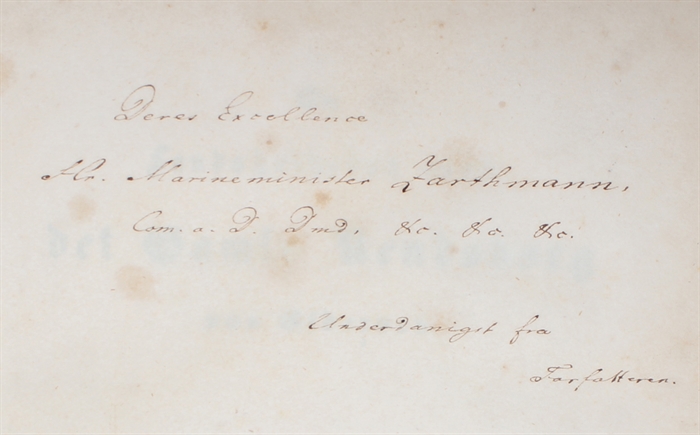 Deres Excellence
Hr. Marineminister Zarthmann,
Com. a. D. Dmd, &c. &c. &c.
Underdanigst fra
Forfatteren.